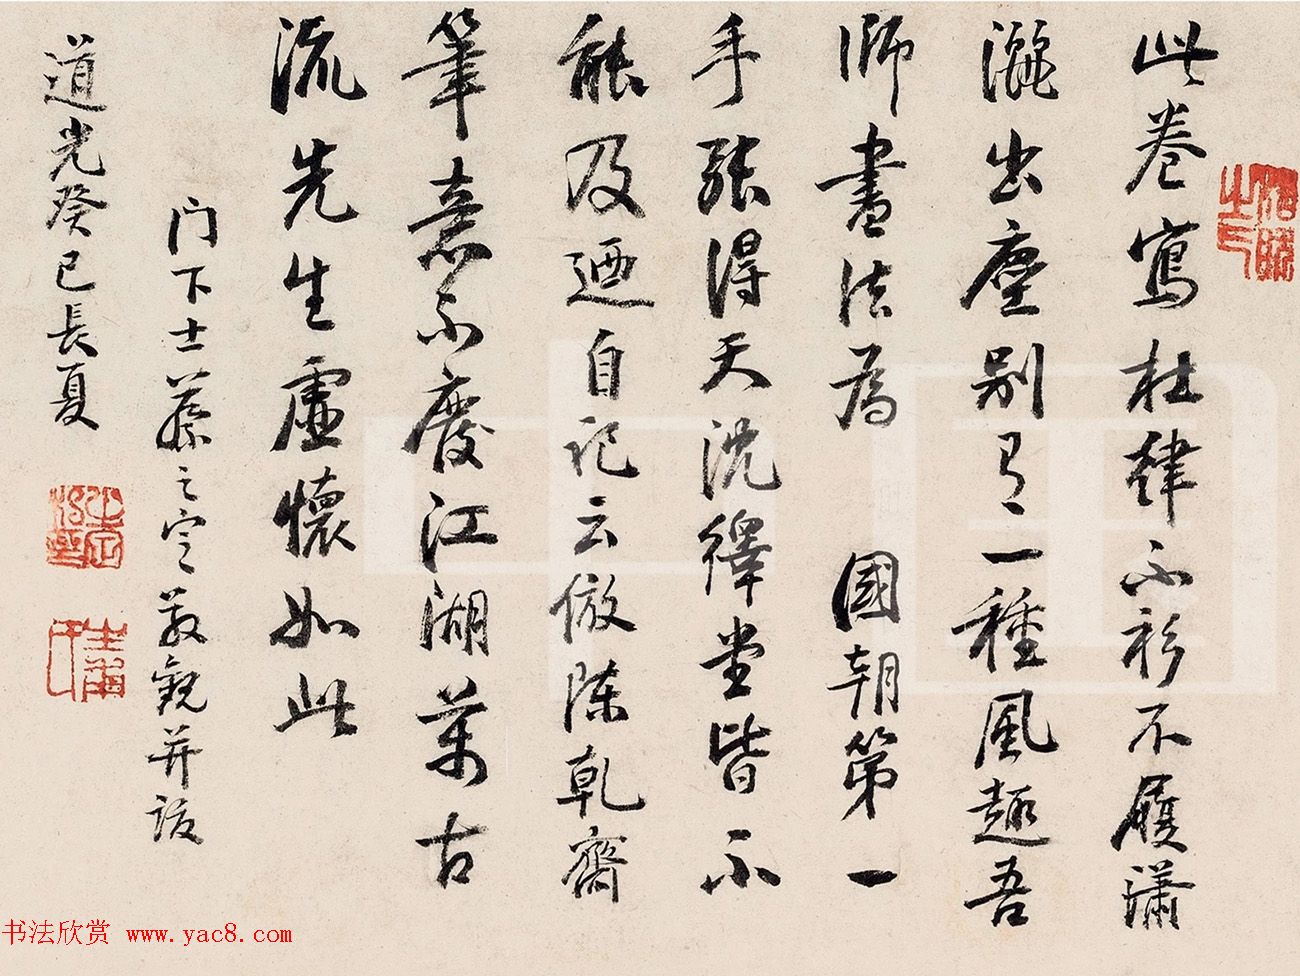 此卷寫杜律不衫不履瀟
灑出塵別有一種風趣吾
師書法爲 國朝第一
手張得天沈繹堂皆不
能及迺自記云倣陳乾齋
筆意不廢江湖萬古
流先生虛懷如此
门下士蔡之定敬觀并跋
道光癸巳長夏
书法欣赏 www.yac8.com
中国